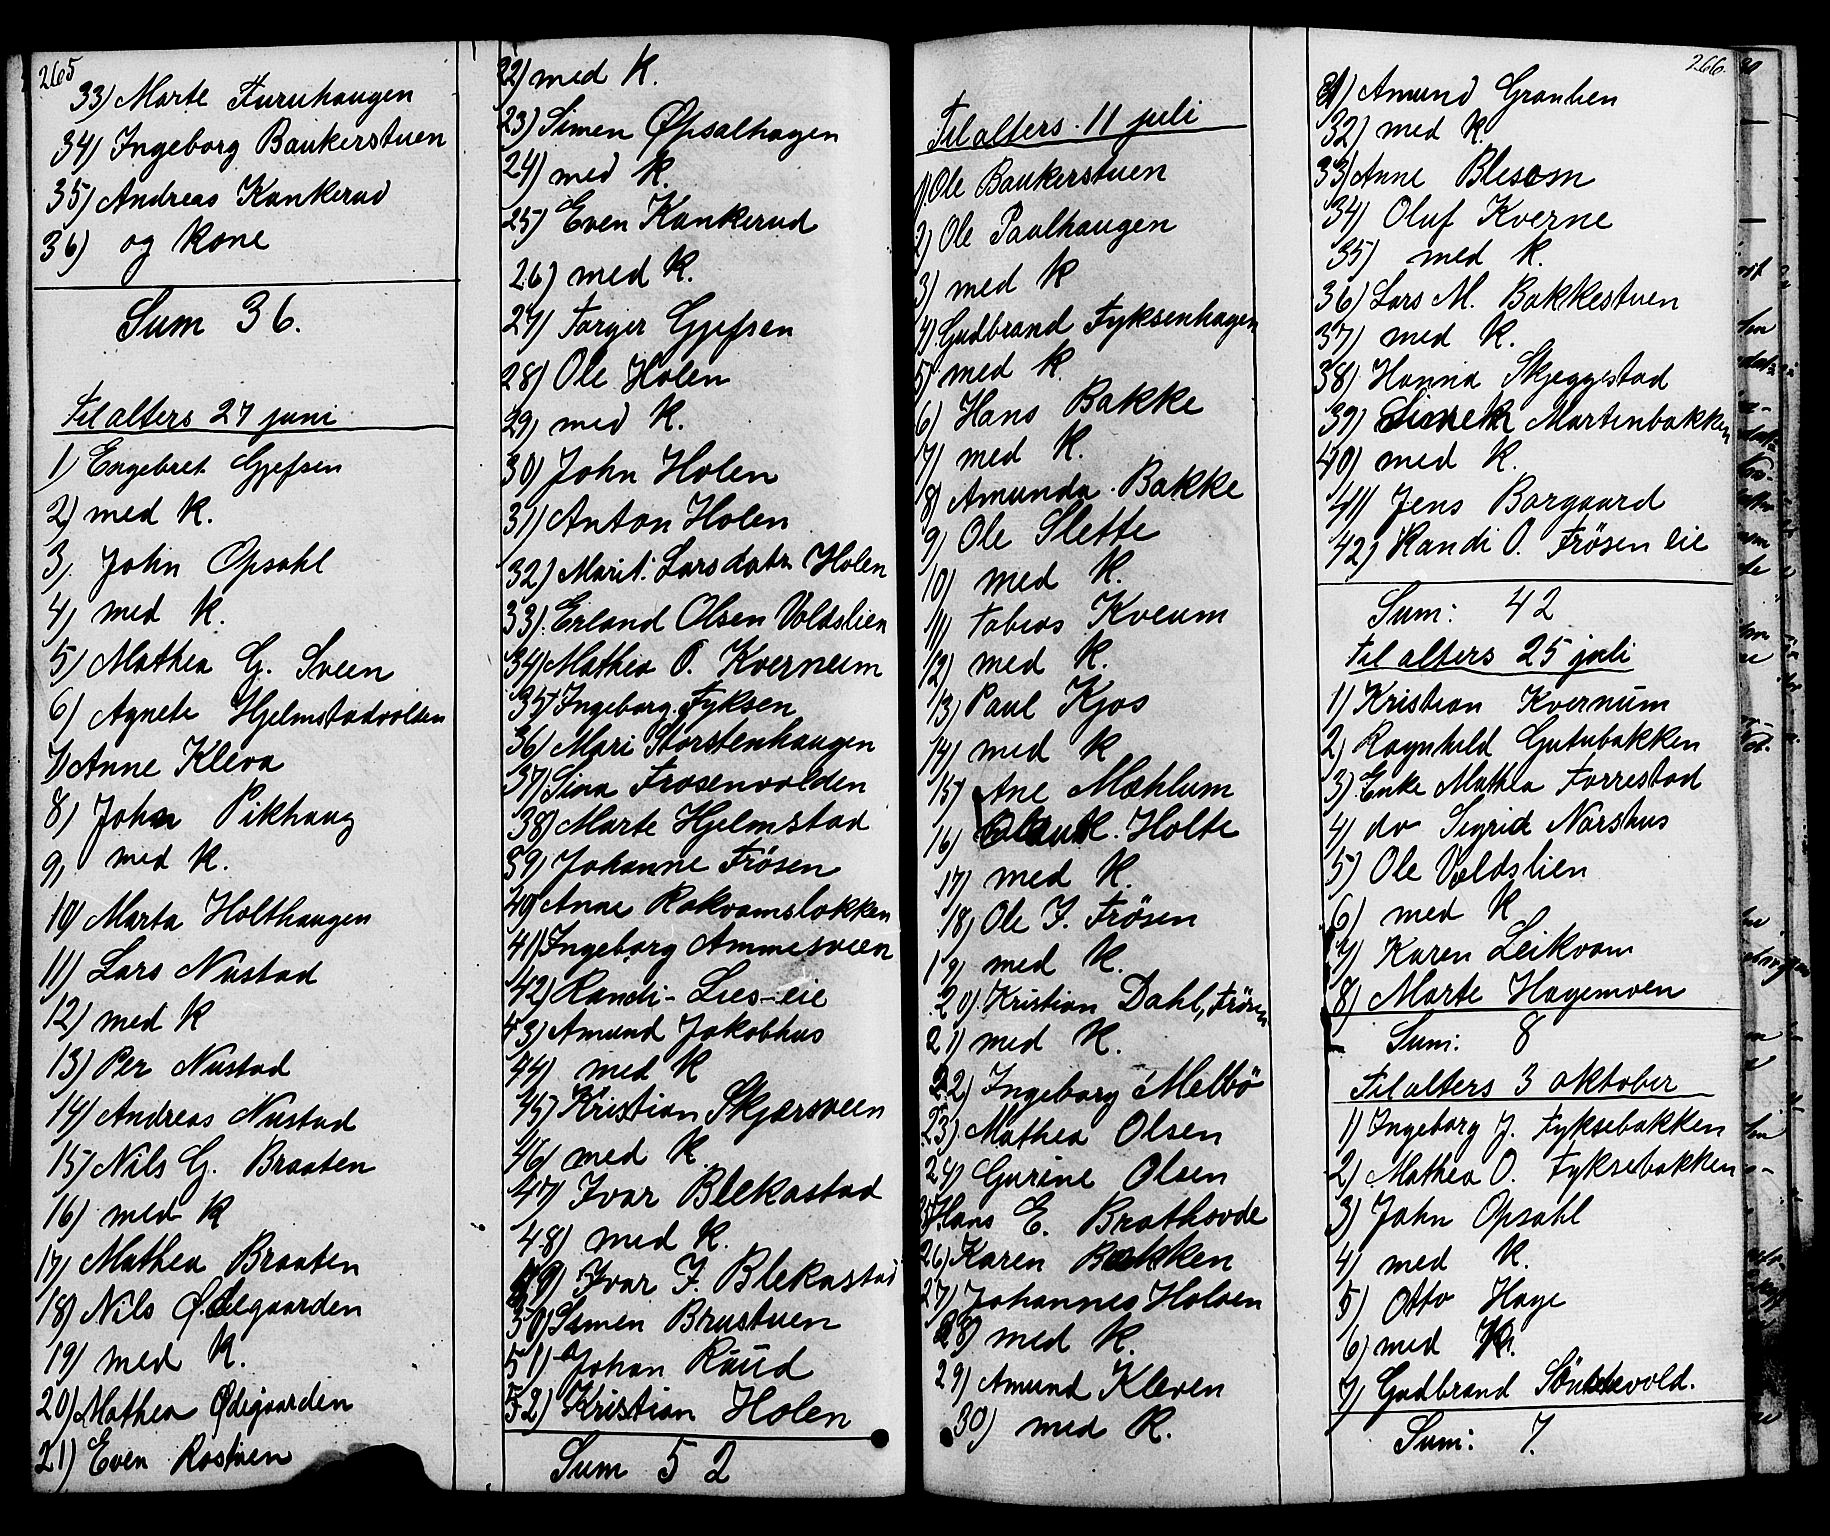 265
33) Marte Furuhaugen
34) Ingeborg Baukerstuen
35) Andreas Kankerud
36) og kone
Sum 36.
Til alters 27 juni
1) Engebret Gjefsen
2) med K.
3, John Opsahl
4, med K.
5) Mathea G. Sveen
6) Agnete Hjelmstadvolden
7) Anne Kleva
8) John Pikhaug
9, med K.
10) Marta Holthaugen
11) Lars Nustad
12) med K
13) Per Nustad
14) Andreas Nustad
15) Nils G. Braaten
16) med K
17) Mathea Braaten
18) Nils Ødegaarden
19) med K.
20) Mathea Ødegaarden
21) Even Rostuen
22) med K.
23) Simen Øpsalhagen
24) med K.
25) Even Kankerud
26) med K.
27) Torger Gjefsen
28) Ole Holen
29, med K.
30) John Holen
31) Anton Holen
32) Marit Larsdatr Holen
33) Erland Olsen Voldslien
34) Mathea O. Kvernum
35) Ingeborg Fyksen
36) Mari Storstenhaugen
37) Sina Frosenvolden
38) Marte Hjelmstad
39) Johanne Frösen
40) Anne Rakvamsløkken
41) Ingeborg Ammesveen
42) Randi Lies-eie
43) Amund Jakobhus
44) med K
45) Kristian Skjærsveen
46) med K
47) Ivar Blekastad
48) med K.
49) Ivar J. Blekastad
50) Semen Brustuen
51) Johan Ruud
52) Kristian Holen
Sum 52
266.
Til alters 11 juli
1) Ole Baukerstuen
2) Ole Paulhaugen
3) med K
4) Gudbrand Fyksenhagen
5) med K
6) Hans Bakke
7) med K.
8) Amunda Bakke
9) Ole Slette
10) med K.
11) Tobias Kveum
12) med K.
13) Paul Kjos
14) med K
15) Ane Mæhlum
16) Holte
17) med K.
18) Ole J. Frösen
19) med K.
20) Kristian Dahl, Frösen
21) med K.
22) Ingeborg Melbö
23) Mathea Olsen
24) Gurine Olsen
25) Hans E. Brathovde
26) Karen Bakken
27) Johannes Holven
28) med K.
29) Amund Kleven
30) med K.
31) Amund Granlien
32) med K.
33) Anne Blesom
34) Oluf Kverne
35) med K.
36) Lars M. Bakkestuen
37) med K.
38) Hanna Skjeggestad
39) Martinbakken
40) med K.
41) Jens Borgaard
42) Randi O. Frösen eie
Sum: 42
Til alters 25 juli
1) Kristian Kvernum
2) Ragnhild Gutubakken
3) Enke Mathea Forrestad
4) do Sigrid Norshus
5) Ole Voldslien
6) med K
7) Karen Leikvam
8) Marte Hagemoen
Sum: 8
Til alters 3 oktober
1) Ingeborg J. Fyksebakken
2) Mathea O. Fyksebakken
3) John Opsahl
4) med K.
5) Otto Hage
6) med K.
7) Gudbrand
Sum: 7.